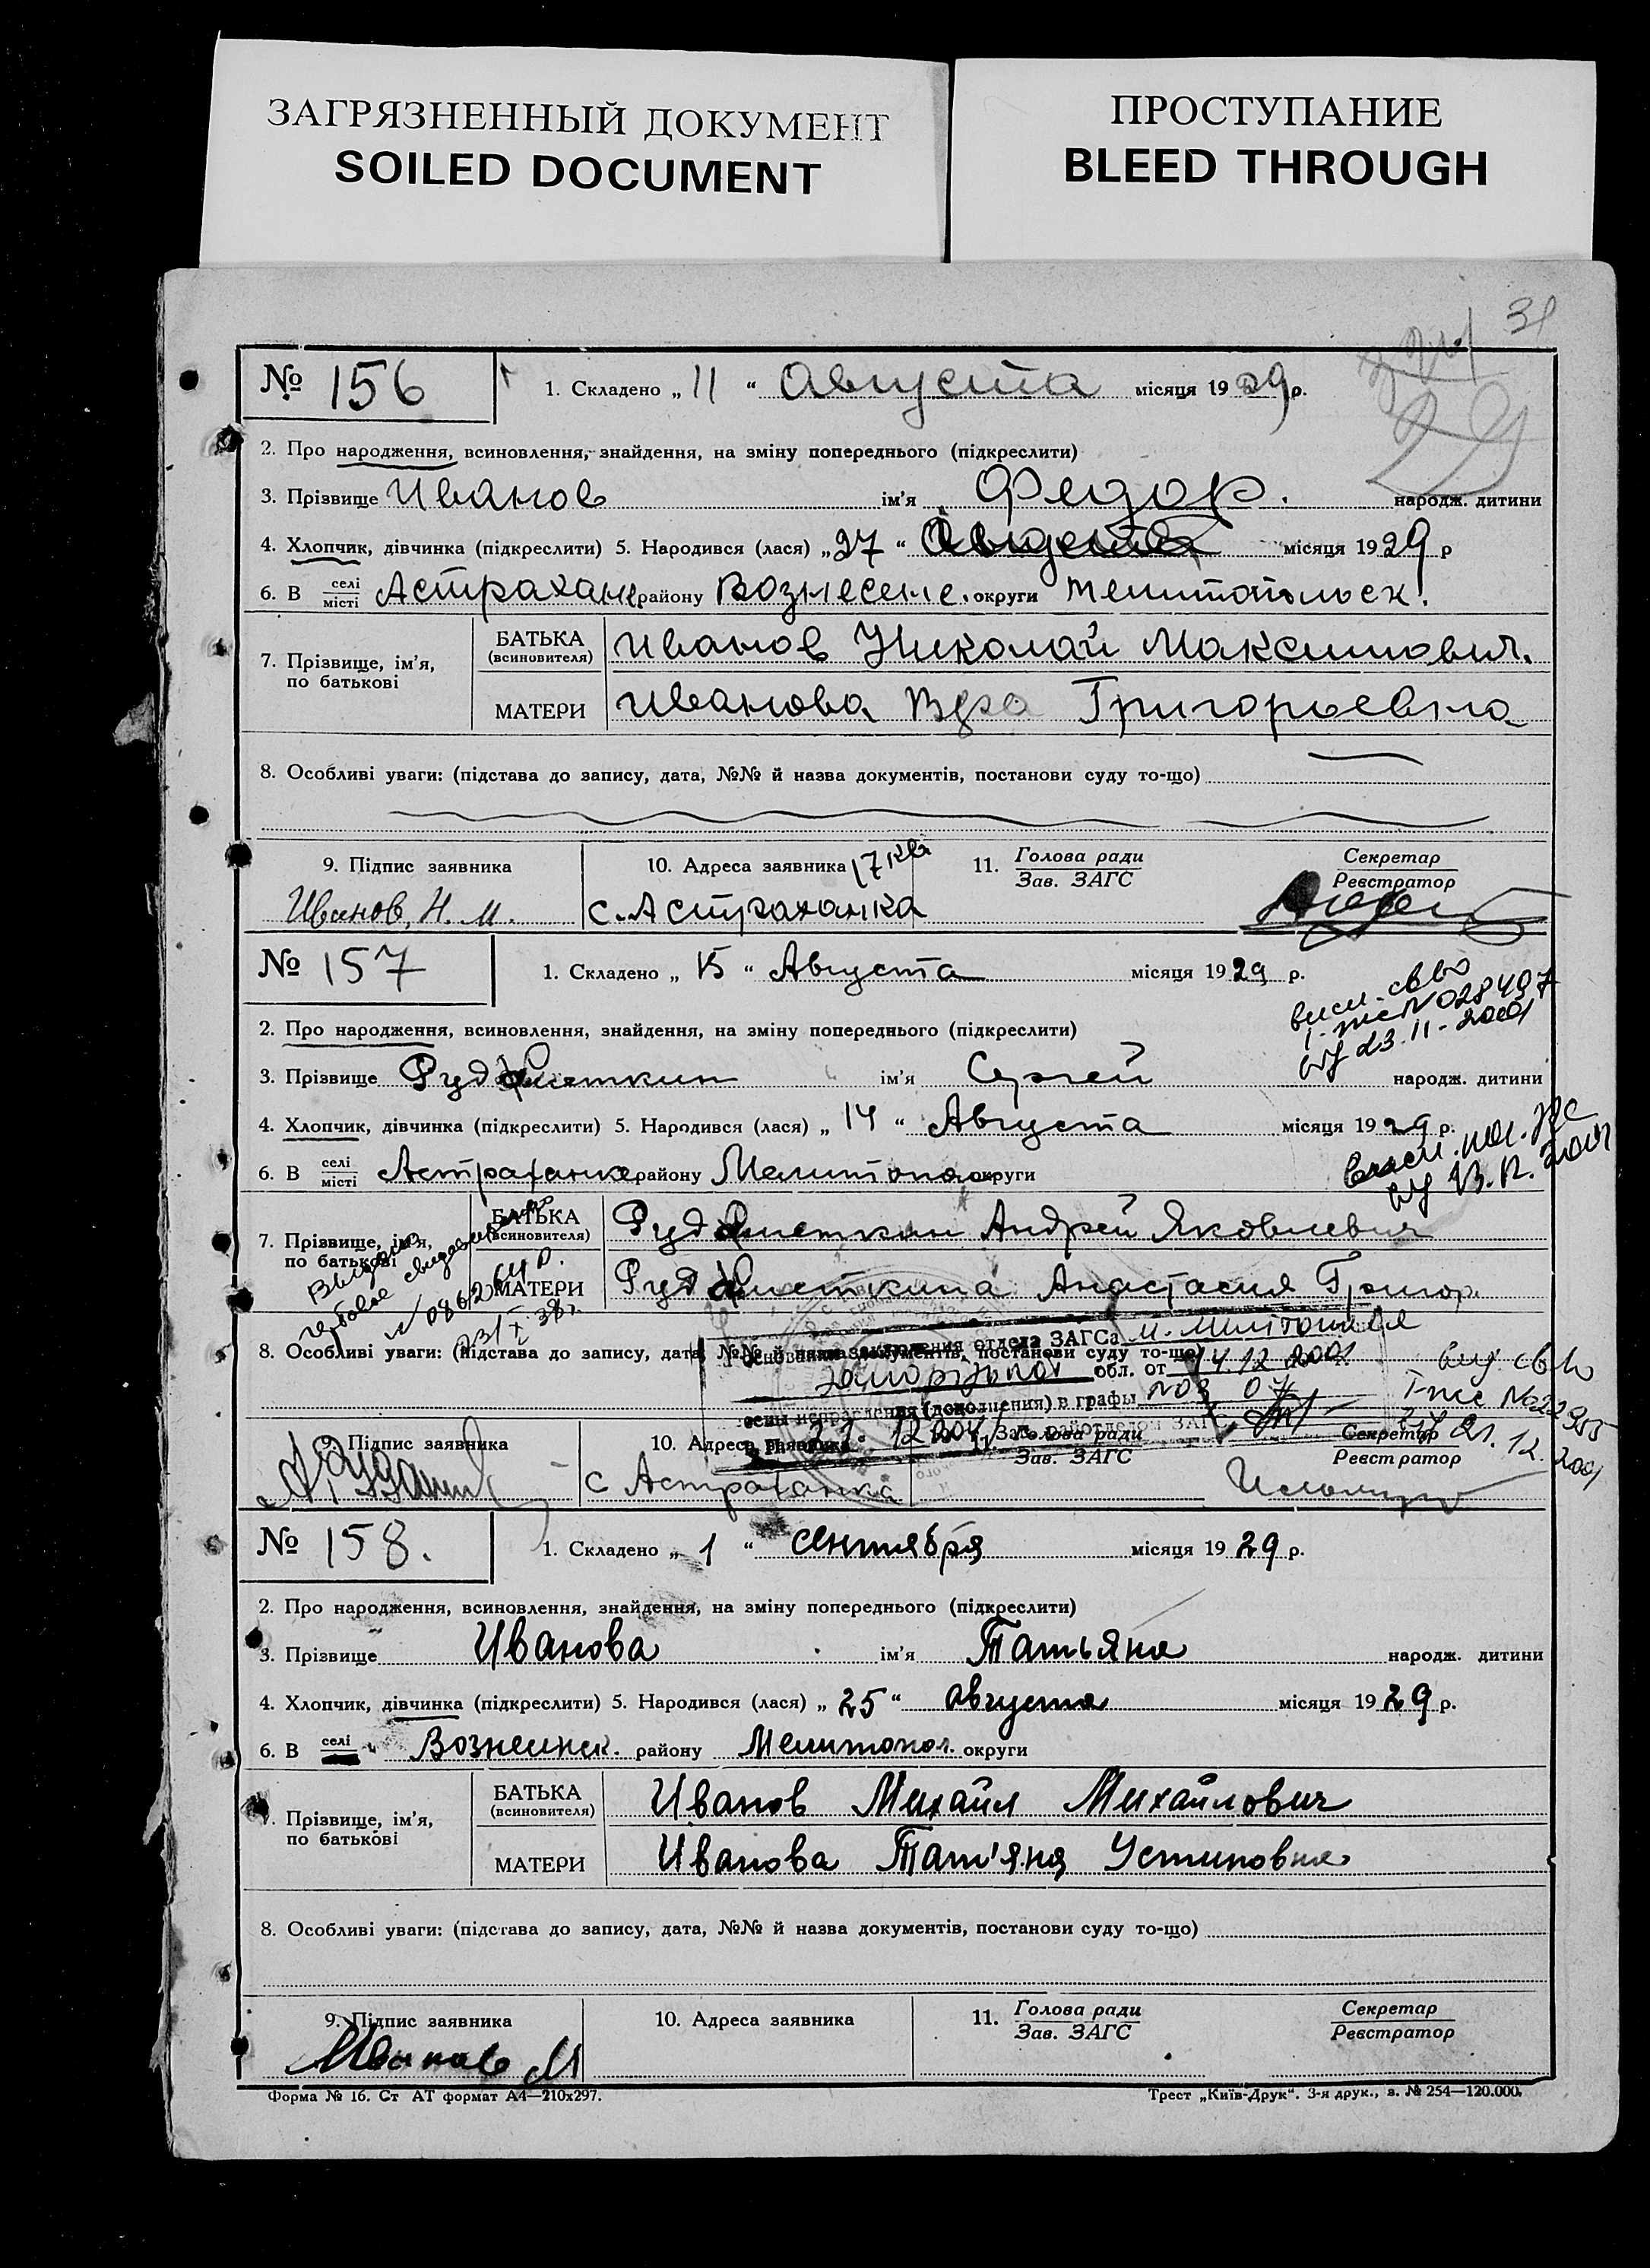 ЗАГРЯЗНЕННЫЙ ДОКУМЕНТ
SOILED DOCUMENT
ПРОСТУПАНИЕ
BLEED THROUGH
31
№ 156
1. Складено „ 11 “ Августа місяця 1929 р.
2. Про народження, всиновлення, знайдення, на зміну попереднього (підкреслити)
3. Прізвище Иванов ім’я Федор. народж. дитини
4. Хлопчик, дівчинка (підкреслити) 5. Народився (лася) „27“ Августа місяця 1929 р
6. В селі/місті Астрахан району Вознесенс. округи Мелитопольск.
7. Прізвище, ім’я, по батькові
БАТЬКА (всиновителя) Иванов Николай Максимович.
МАТЕРИ Иванова Вера Григорьевна
8. Особливі уваги: (підстава до запису, дата, №№ й назва документів, постанови суду то-що)
9. Підпис заявника
10. Адреса заявника 17 кв
11. Голова ради / Зав. ЗАГС
Секретар / Реєстратор
Иванов, Н. М.
с. Астраханка
№ 157
1. Складено „ 15 “ Августа місяця 1929 р.
2. Про народження, всиновлення, знайдення, на зміну попереднього (підкреслити)
3. Прізвище Рудометкин ім’я Сергей народж. дитини
4. Хлопчик, дівчинка (підкреслити) 5. Народився (лася) „ 14 “ Августа місяця 1929 р.
6. В селі/місті Астраханке району Мелитопол округи
7. Прізвище, ім’я, по батькові
БАТЬКА (всиновителя) Рудометкин Андрей Яковлевич
МАТЕРИ Рудометкина Анастасия Григор.
8. Особливі уваги: (підстава до запису, дата, №№ й назва документів, постанови суду то-що)
заключения отдела ЗАГСа м. Мелітополя
обл. от 14.12 2001
исправления (дополнения) в графы №3, 07
9. Підпис заявника
10. Адреса заявника
Голова ради / Зав. ЗАГС
Секретар / Реєстратор
с Астраханка
21.12.2001
№ 158.
1. Складено „ 1 “ сентября місяця 1929 р.
2. Про народження, всиновлення, знайдення, на зміну попереднього (підкреслити)
3. Прізвище Иванова ім’я Татьяна народж. дитини
4. Хлопчик, дівчинка (підкреслити) 5. Народився (лася) „ 25 “ августа місяця 1929 р.
6. В селі Вознесенск. району Мелитопол. округи
7. Прізвище, ім’я, по батькові
БАТЬКА (всиновителя) Иванов Михаил Михайлович
МАТЕРИ Иванова Тат'яна Устиновна
8. Особливі уваги: (підстава до запису, дата, №№ й назва документів, постанови суду то-що)
9. Підпис заявника
10. Адреса заявника
11. Голова ради / Зав. ЗАГС
Секретар / Реєстратор
Иванов М
Форма № 16. Ст АТ формат А4—210х297.
Трест „Київ-Друк“. 3-я друк., з. № 254—120.000.